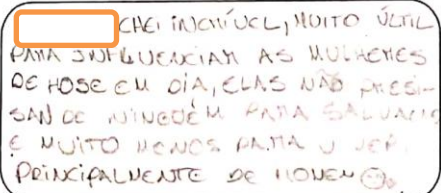 CHEI INCRÍVEL, MUITO ÚLTIL
PARA INFLUENCIAR AS MULHERES
DE HOSE EM DIA, ELAS NÃO PRESI-
SAN DE NINGUÉM PARA SALVA-LAS
E MUITO MENOS PARA VIVER.
PRINCIPALMENTE DE HOMEN